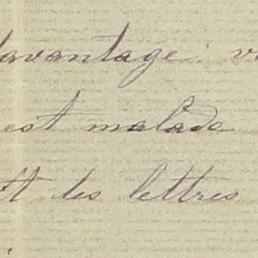 davantage. v
est malade
tt des lettres